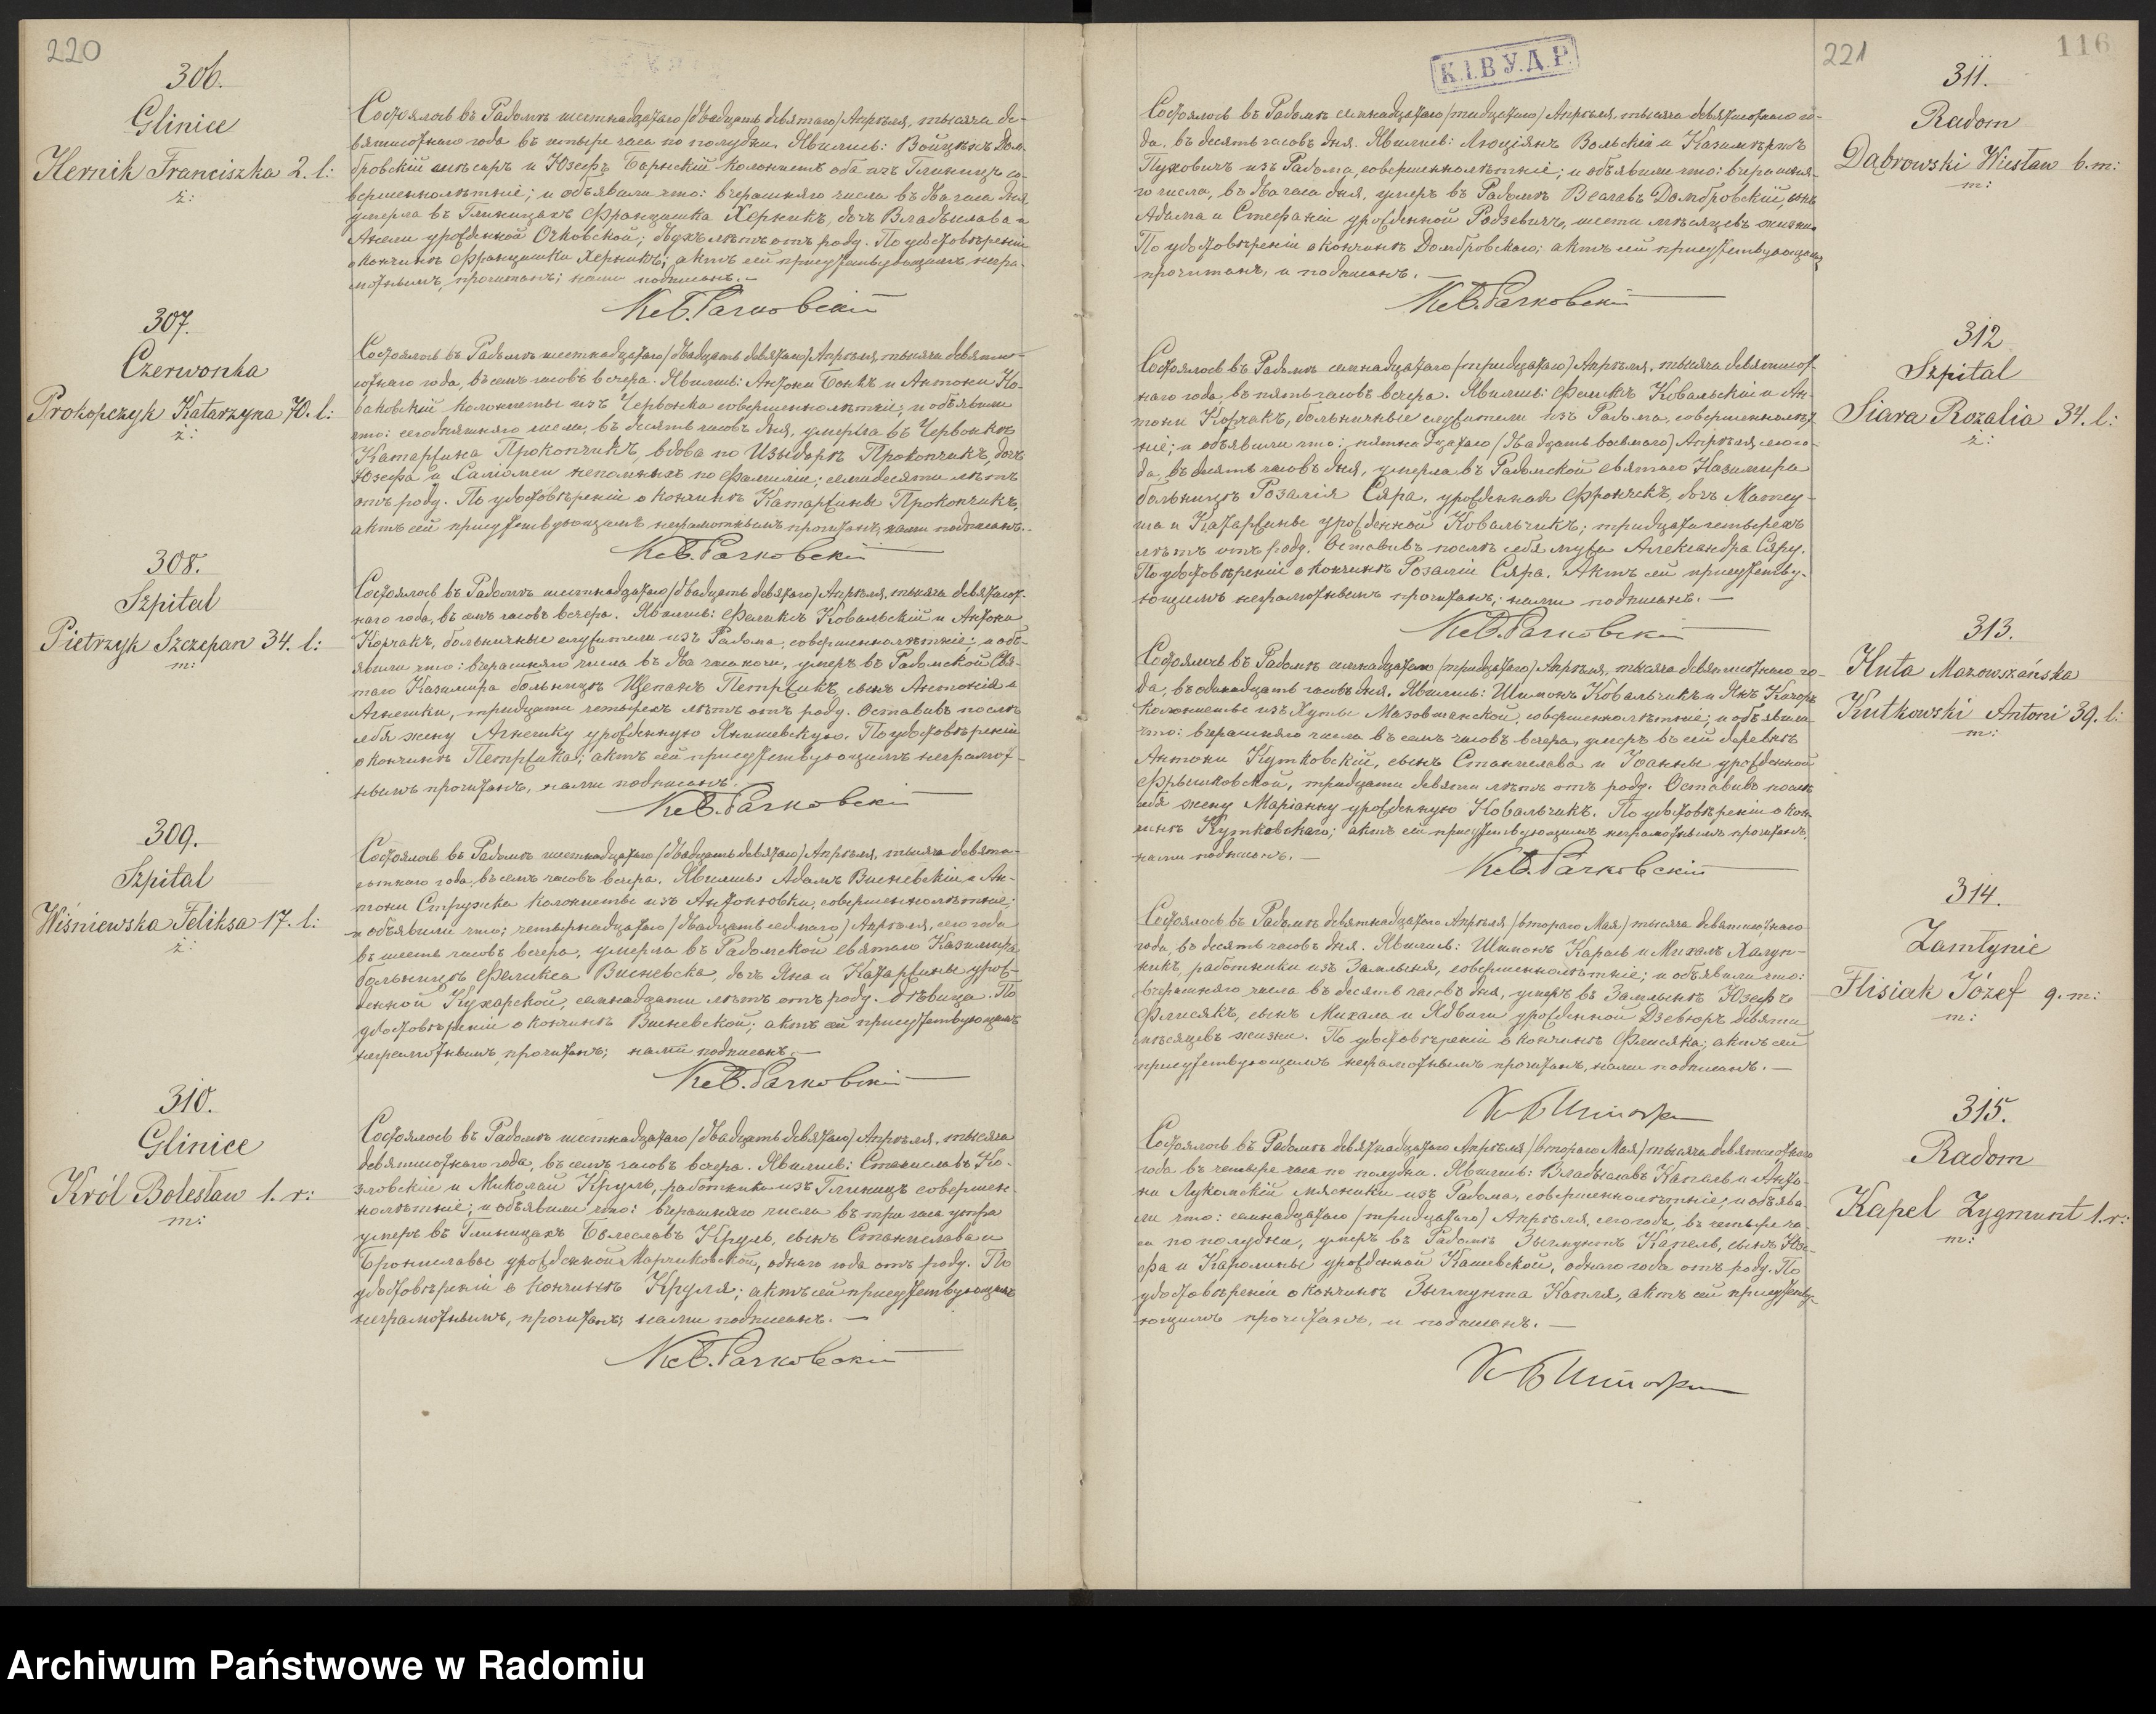 220
306.
Glinice
Hernik Franciszka 2. l:
ż:
Состоялось въ Радомѣ шестнадцатаго /двадцать девятаго/ Апрѣля, тысяча де-
вятисотнаго года въ четыре часа по полудни. Явились: Войцѣхъ Дом-
бровскій слесаръ и Юзефъ Барыскій колонистъ оба изъ Глиницъ со-
вершеннолѣтніе; и объявили что: вчерашняго числа въ два часа дня
умерла въ Глиницахъ Францишка Херникъ, дочь Владыслава и
Анели урожденной Очковской; двухъ лѣтъ отъ роду. По удостовѣреніи
о кончинѣ Францишки Херникъ; актъ сей присутствующимъ негра-
мотнымъ, прочитанъ; нами подписанъ.—
Кс В. Рачковскій
307.
Czerwonka
Prokopczyk Katarzyna 70. l:
ż:
Состоялось въ Радомѣ шестнадцатаго /двадцать девятаго/ Апрѣля, тысяча девяти-
сотнаго года, въ семь часовъ вечера. Явились: Антони Бонкъ и Антони Но-
ваковскій колонисты изъ Червонка совершеннолѣтніе; и объявили
что: сегодняшняго числа, въ десять часовъ дня, умерла въ Червонкѣ
Катаржина Прокопчикъ, вдова по Изыдорѣ Прокопчикъ, дочь
Юзефа и Саломеи непомнихъ по фамиліи; семидесяти лѣтъ
отъ роду. По удостовѣреніи о кончинѣ Катаржины Прокопчикъ,
актъ сей присутствующимъ неграмотнымъ прочитанъ, нами подписанъ.—
Кс В. Рачковскій
308.
Szpital
Pietrzyk Szczepan 34. l:
m:
Состоялось въ Радомѣ шестнадцатаго /двадцать девятаго/ Апрѣля, тысяча девятисот-
наго года, въ семь часовъ вечера. Явились: Феликсъ Ковальскій и Антони
Корчакъ, больничные служители изъ Радома, совершеннолѣтніе; и объ-
явили что: вчерашняго числа въ два часа ночи, умеръ въ Радомской Свя-
таго Казимира больницѣ Щепанъ Петржикъ, сынъ Антонія и
Агнешки, тридцати четырехъ лѣтъ отъ роду. Оставивъ послѣ
себя жену Агнешку урожденную Янишевскую. По удостовѣреніи
о кончинѣ Петржика; актъ сей присутствующимъ неграмот-
нымъ прочитанъ, нами подписанъ.
Кс В. Рачковскій
309.
Szpital
Wiśniewska Feliksa 17. l:
ż:
Состоялось въ Радомѣ шестнадцатаго /двадцать девятаго/ Апрѣля, тысяча девяти-
сотнаго года, въ семь часовъ вечера. Явились: Адамъ Висневскій и Ан-
тони Стружка колонисты изъ Антоновки, совершеннолѣтніе;
и объявили что; четырнадцатаго /двадцать седьмаго/ Апрѣля, сего года
въ шесть часовъ вечера, умерла въ Радомской святаго Казимира
больницѣ Феликса Висневска, дочь Яна и Катаржины урож-
денной Кухарской, семнадцати лѣтъ отъ роду. Дѣвица. По
удостовѣреніи о кончинѣ Висневской; актъ сей присутствующимъ
неграмотнымъ, прочитанъ; нами подписанъ.—
Кс В. Рачковскій
310.
Glinice
Król Bolesław 1. r:
m:
Состоялось въ Радомѣ шестнадцатаго /двадцать девятаго/ Апрѣля, тысяча
девятисотнаго года, въ семь часовъ вечера. Явились: Станиславъ Ко-
зловскіе и Миколай Круль, работники изъ Глиницъ совершен-
нолѣтніе; и объявили что: вчерашняго числа въ три часа утра
умеръ въ Глиницахъ Болеславъ Круль, сынъ Станислава и
Брониславы урожденной Марчиковской, одного года отъ роду. По
удостовѣреніи о кончинѣ Круля; актъ сей присутствующимъ
неграмотнымъ, прочитанъ; нами подписанъ.—
Кс В. Рачковскій
К.I.В У.Д.Р.
221
116
311.
Radom
Dąbrowski Wiesław 6. m:
m:
Состоялось въ Радомѣ семнадцатаго /тридцатаго/ Апрѣля, тысяча девятисотнаго го-
да, въ десять часовъ дня. Явились: Люціянъ Вольскій и Казимѣржъ
Пуховичъ изъ Радома, совершеннолѣтніе; и объявили что: вчерашня-
го числа, въ два часа дня, умеръ въ Радомѣ Веславъ Домбровскій, сынъ
Адама и Стефаніи урожденной Родзевичъ, шести мѣсяцевъ жизни.
По удостовѣреніи о кончинѣ Домбровскаго; актъ сей присутствующимъ
прочитанъ, и подписанъ.—
Кс В. Рачковскій
312
Szpital
Siara Rozalia 34. l:
ż:
Состоялось въ Радомѣ семнадцатаго /тридцатаго/ Апрѣля, тысяча девятисот-
наго года, въ пять часовъ вечера. Явились: Феликсъ Ковальскій и Ан-
тони Корчакъ, больничные служители изъ Радома, совершеннолѣт-
ніе; и объявили что; пятнадцатаго /двадцать восьмаго/ Апрѣля, сего го-
да, въ десять часовъ дня, умерла въ Радомской святаго Казимира
больницѣ Розалія Сяра, урожденная Фрончекъ, дочь Матеу-
ша и Катаржины урожденной Ковальчикъ; тридцати четырехъ
лѣтъ отъ роду. Оставивъ послѣ себя мужа Александра Сяру.
По удостовѣреніи о кончинѣ Розаліи Сяра. Актъ сей присутству-
ющимъ неграмотнымъ прочитанъ; нами подписанъ.—
Кс В. Рачковскій
313.
Huta Mazowszańska
Kutkowski Antoni 39. l:
m:
Состоялось въ Радомѣ семнадцатаго /тридцатаго/ Апрѣля, тысяча девятисотнаго го-
да, въ одинадцать часовъ дня. Явились: Шимонъ Ковальчикъ и Янъ Качоръ
колонисты изъ Хуты Мазовшанской, совершеннолѣтніе; и объявили
что: вчерашняго числа въ семь часовъ вечера, умеръ въ сей деревнѣ
Антони Кутковскій, сынъ Станислава и Іоанны урожденной
Фрышковской, тридцати девяти лѣтъ отъ роду. Оставивъ послѣ
себя жену Маріанну урожденную Ковальчикъ. По удостовѣреніи о кон-
чинѣ Кутковскаго; актъ сей присутствующимъ неграмотнымъ прочитанъ,
нами подписанъ.—
Кс В. Рачковскій
314.
Zamłynie
Flisiak Józef 9. m:
m:
Состоялось въ Радомѣ девятнадцатаго Апрѣля /втораго Мая/ тысяча девятисотнаго
года, въ десять часовъ дня. Явились: Шимонъ Карась и Михалъ Халуп-
никъ, работники изъ Замлынія, совершеннолѣтніе; и объявили что:
вчерашняго числа въ десять часовъ дня, умеръ въ Замлынѣ Юзефъ
Флисякъ, сынъ Михала и Ядвиги урожденной Дзевіоръ девяти
мѣсяцевъ жизни. По удостовѣреніи о кончинѣ Флисяка; актъ сей
присутствующимъ неграмотнымъ прочитанъ, нами подписанъ.—
315.
Radom
Kapel Zygmunt 1. r:
m:
Состоялось въ Радомѣ девятнадцатаго Апрѣля /втораго Мая/ тысяча девятисотнаго
года въ четыре часа по полудни. Явились: Владыславъ Капель и Анто-
ни Лукомскій мясники изъ Радома, совершеннолѣтніе; и объяви-
ли что: семнадцатаго /тридцатаго/ Апрѣля, сего года, въ четыре ча-
са по полудни, умеръ въ Радомѣ Зыгмунтъ Капель, сынъ Юзе-
фа и Каролины урожденной Кашевской, одного года отъ роду. По
удостовѣреніи о кончинѣ Зыгмунта Капля, актъ сей присутству-
ющимъ прочитанъ, и подписанъ.—
Archiwum Państwowe w Radomiu